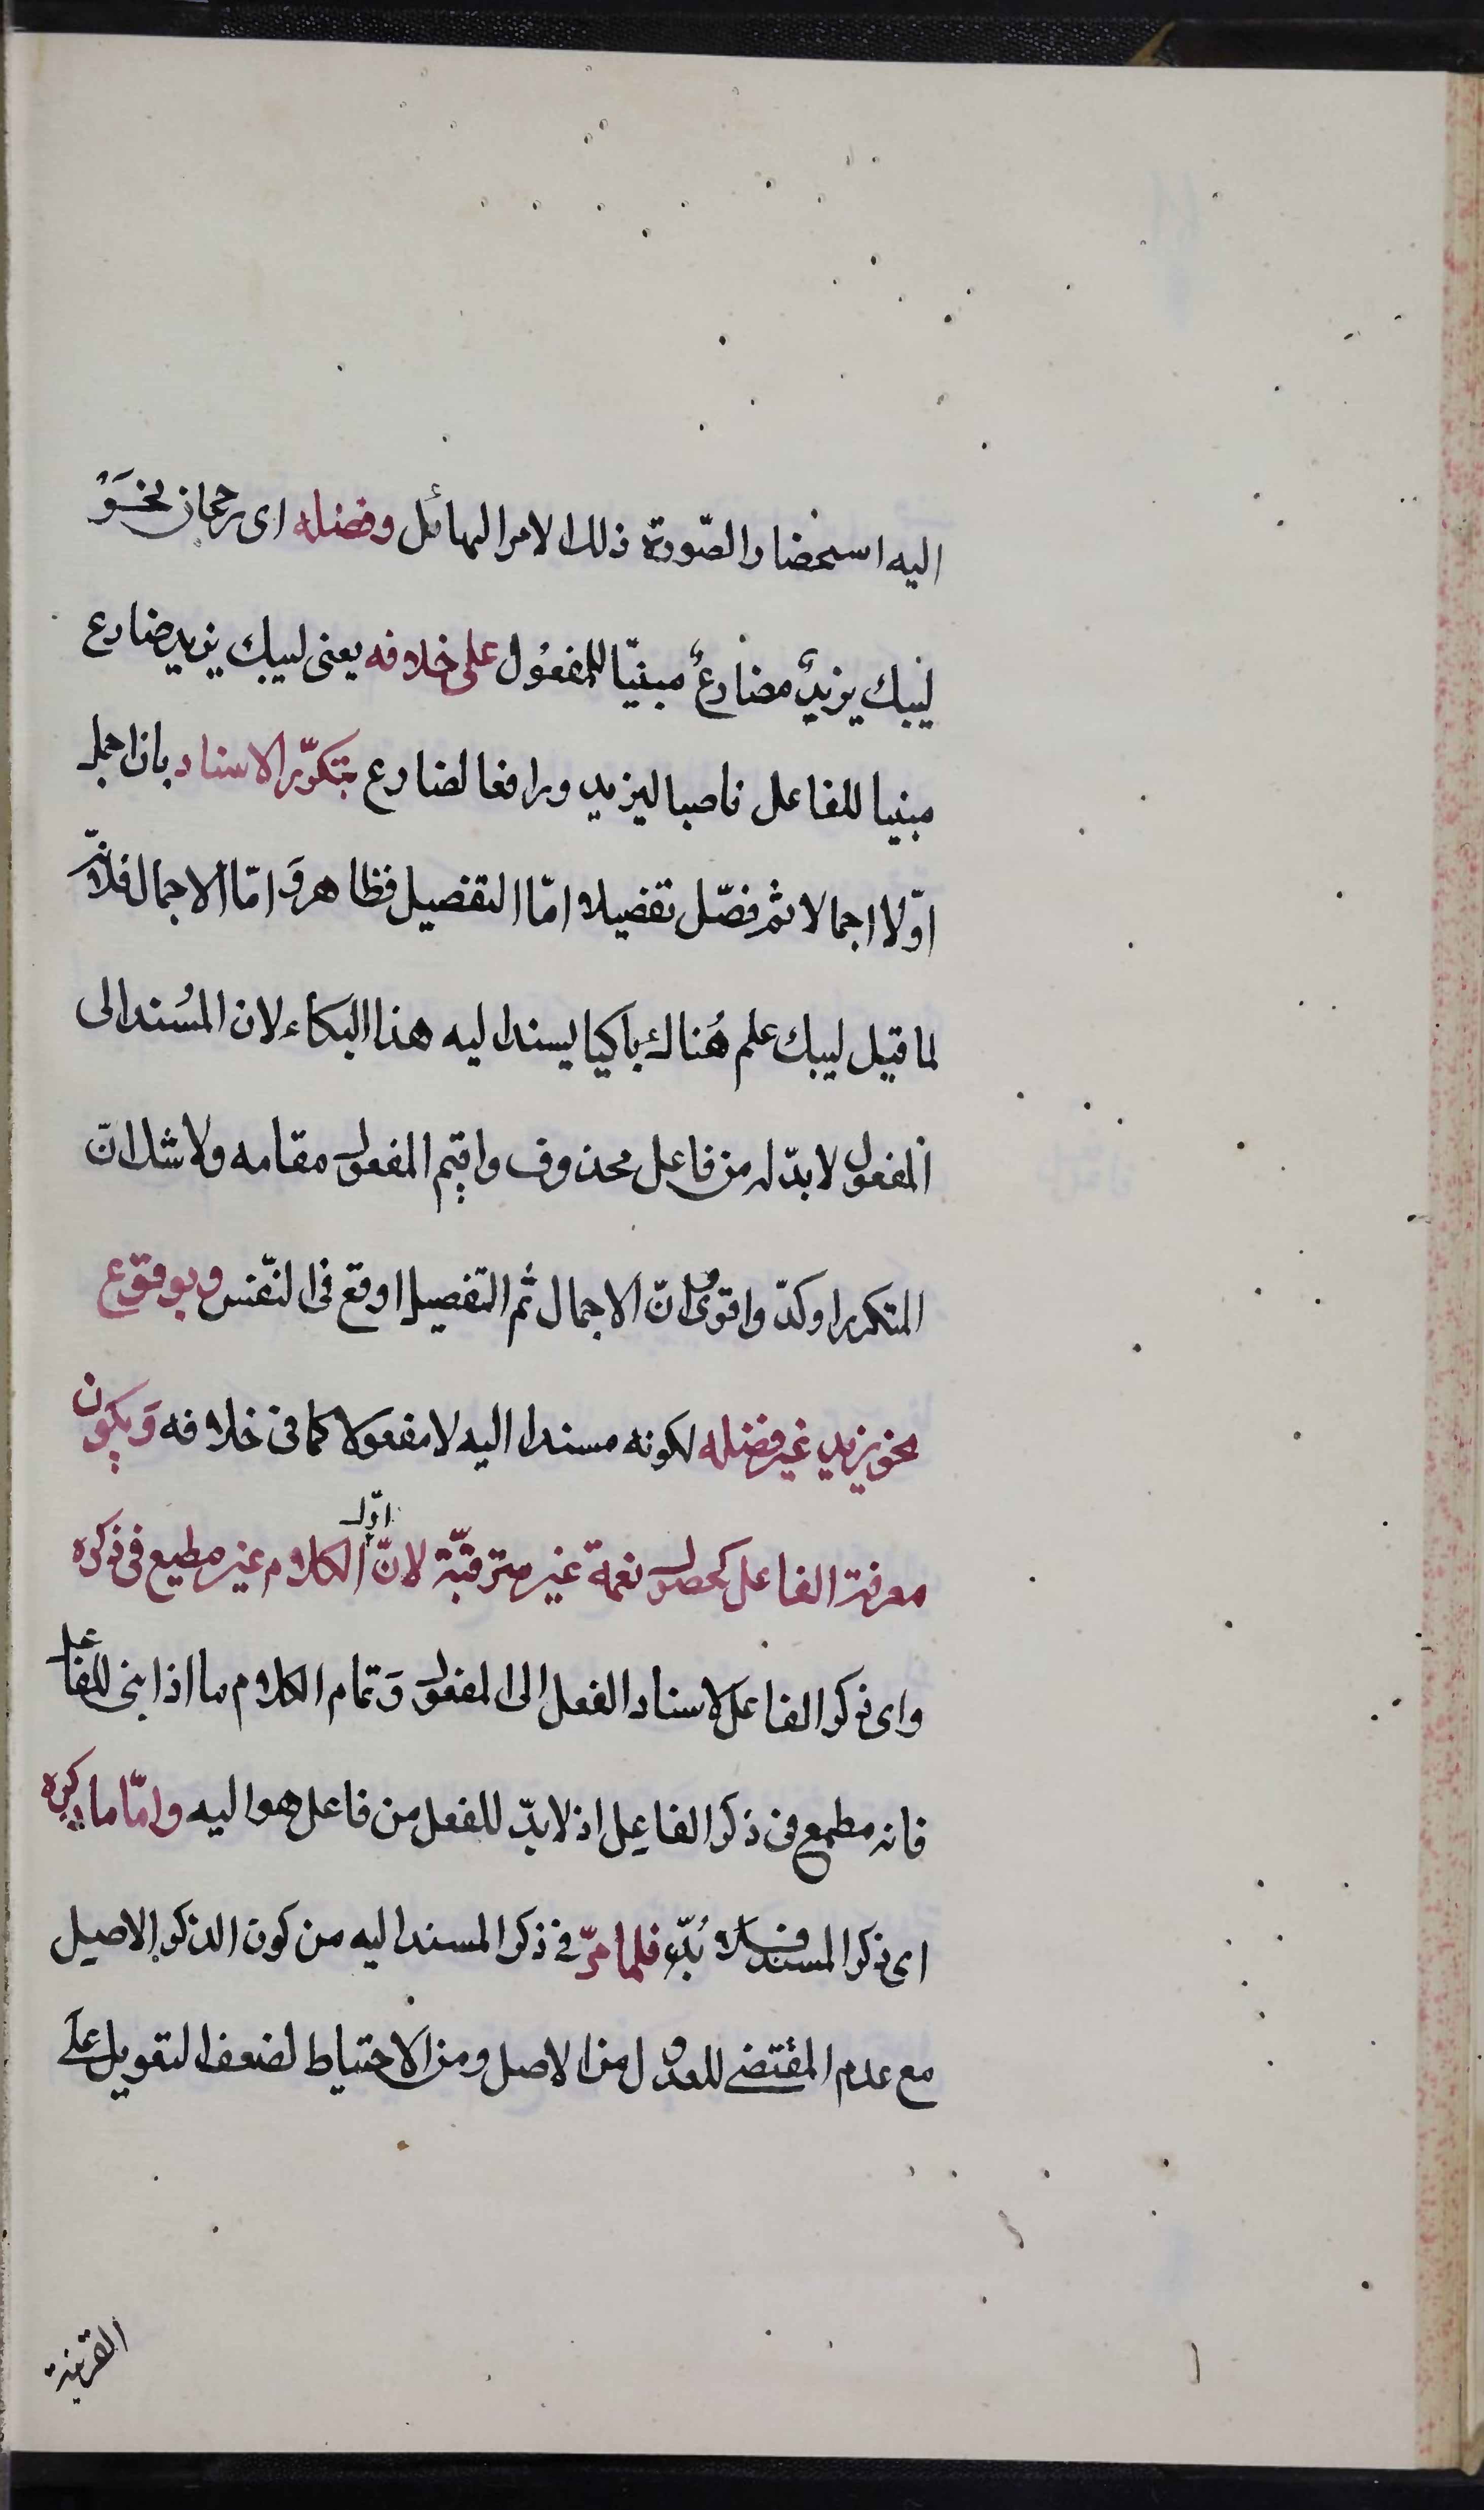 اليه استحضار الصّورة ذلك الامر الهائل وفضله اى رجحان نخوَ
ليبك يزيدٌ مضارعٌ مبنيّا للمفعُول على خلافه يعنى ليبك يزيد ضارع
مبنيا للفاعل ناصبا ليزيد ورافعا لضارع بتكرّر الاسناد بان اجمل
اوّلا اجمالا ثم فصّل تفضيلا امّا التفصيل فظاهر وَامّا الاجمال فلانّه
لما قيل ليبك علم هُناك باكيا يسند اليه هذا البكاء لان المسُند الى
المفعول لا بدّ له من فاعل محذوف واقيم المفعول مقامه ولا شك انّ
المتكرر اوكدّ واقوى وانّ الاجمال ثم التفصيل اوقع فى النّفس وبوقوع
نحو يزيد غير فضله لكونه مسندا اليه لا مفعولا كما فى خلافه وَيكون
معرفة الفاعل كحصول نعمة غير مترقبّة لانّ اوّل الكلام غير مطيع فى ذكره
واى ذكر الفاعل لاسناد الفعل الى المفعول وَتمام الكلام ما اذا بنى للفاعل
فانه مطمع فى ذكر الفاعِل اذ لا بدّ للفعل من فاعل هو اليه وامّا ما ذكره
اى ذكر المسند فلا بُدّ فلما مرّ فى ذكر المسند اليه من كون الذكر الاصيل
مع عدم المقتضى للعدول من الاصل ومن الاحتياط لضعف التعويل على
القرينة